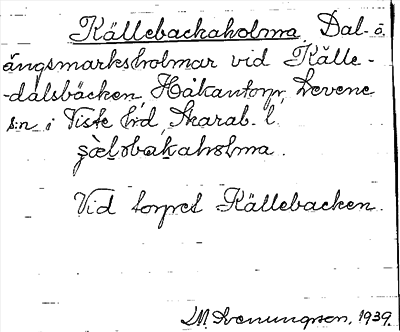 Källebackaholma. Dal- o.
ängsmarksholmar vid Källe-
-dalsbäcken, Håkantorp, Levene
s:n i Viste hd, Skarab. l.
Vid torpet Källebacken.
Svenungson, 1939.